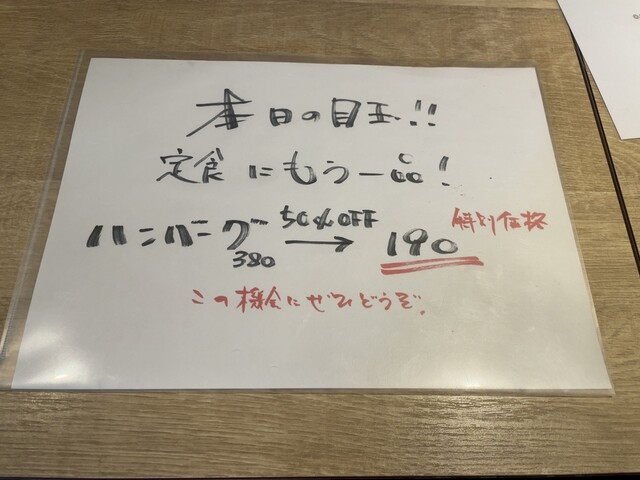 本日の目玉!!
定食にもう一品!
ハンバーグ 380 50%OFF → 190 特別価格
この機会にぜひどうぞ。